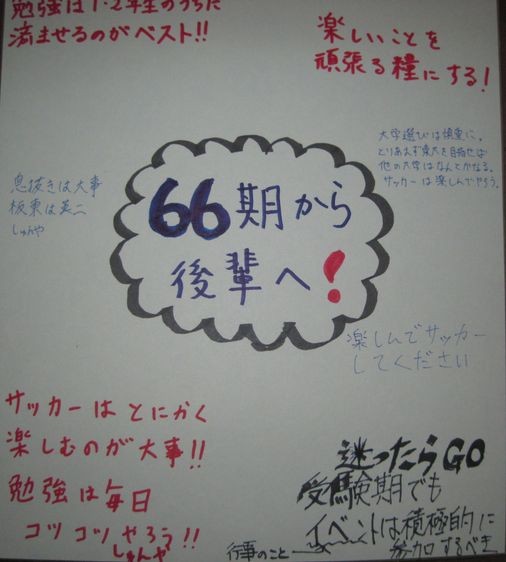 勉強は1・2年生のうちに
済ませるのがベスト!!
楽しいことを
頑張る糧にする!
大学選びは慎重に。
とりあえず東大を目指せば
他の大学はなんとかなる。
サッカーは楽しんでやろう。
息抜きは大事
板東は英二
しゅんや
66期から
後輩へ!
楽しんでサッカー
してください
サッカーはとにかく
楽しむのが大事!!
勉強は毎日
コツコツやろう!!
しゅんや
迷ったらGO
受験期でも
イベントは積極的に
参加するべき
行事のこと